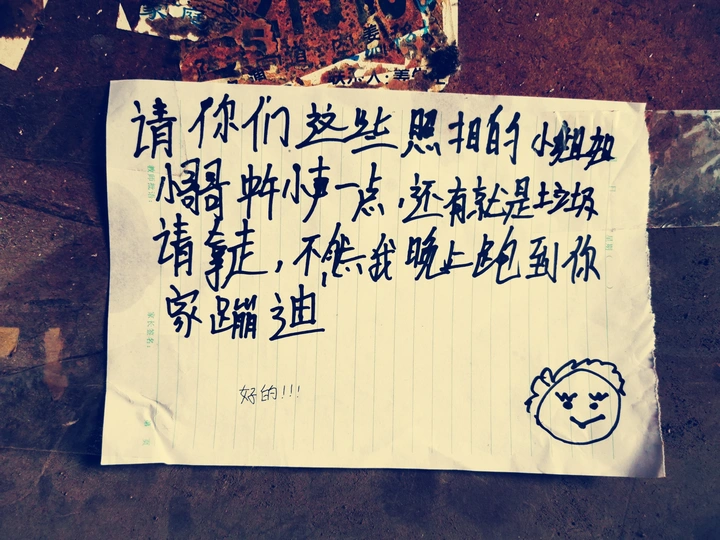 请你们这些照相的小姐姐
小哥哥小声一点，还有就是垃圾
请拿走，不然我晚上跑到你
家蹦迪
好的!!!